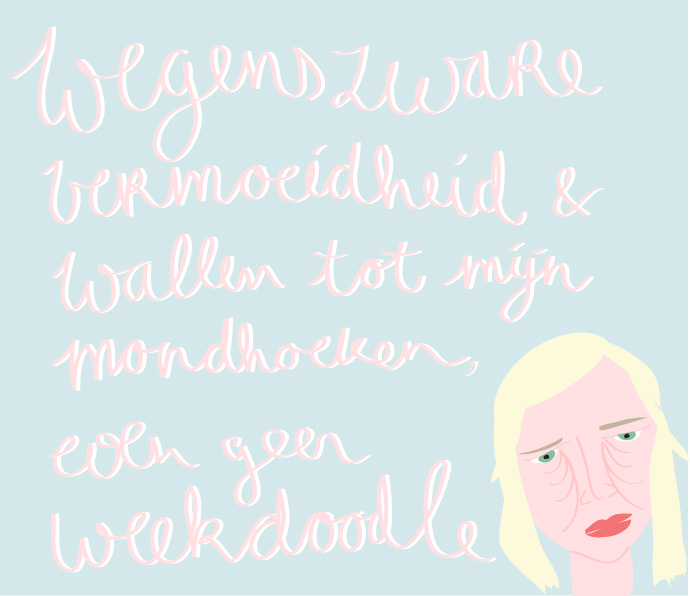 Wegens zware
vermoeidheid &
wallen tot mijn
mondhoeken,
even geen
weekdoodle